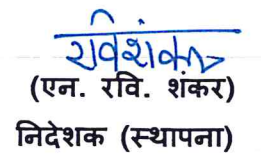 रविशंकर
(एन. रवि. शंकर)
निदेशक (स्थापना)